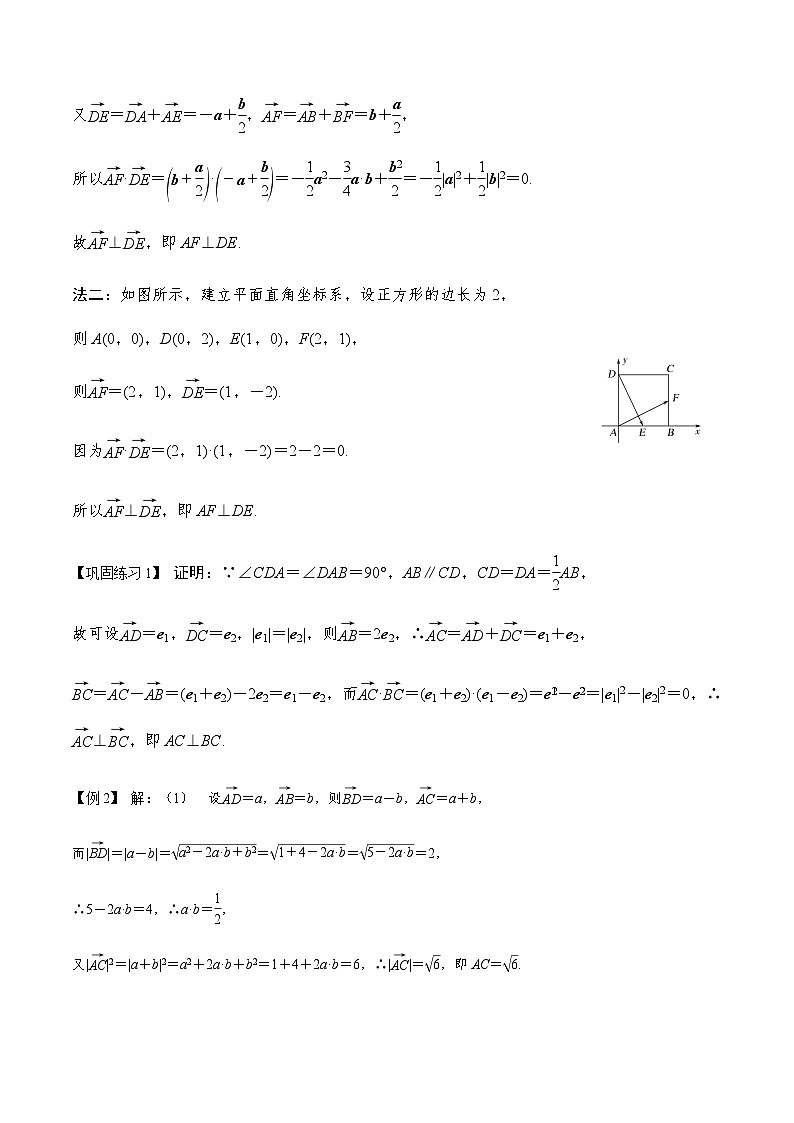 又$\overrightarrow{DE}$=$\overrightarrow{DA}$+$\overrightarrow{AE}$=－**a**+$\frac{b}{2}$，$\overrightarrow{AF}$=$\overrightarrow{AB}$+$\overrightarrow{BF}$=**b**+$\frac{a}{2}$，
所以$\overrightarrow{AF}$·$\overrightarrow{DE}$=$\left(b+\frac{a}{2}\right)$·$\left(-a+\frac{b}{2}\right)$=－$\frac{1}{2}$a²－$\frac{3}{4}$a·b+$\frac{b^2}{2}$=－$\frac{1}{2}$|a|²+$\frac{1}{2}$|b|²=0.
故$\overrightarrow{AF}$⊥$\overrightarrow{DE}$，即 AF⊥DE.
法二：如图所示，建立平面直角坐标系，设正方形的边长为 2，
则 A(0，0)，D(0，2)，E(1，0)，F(2，1)，
则$\overrightarrow{AF}$=(2，1)，$\overrightarrow{DE}$=(1，－2).
因为$\overrightarrow{AF}$·$\overrightarrow{DE}$=(2，1)·(1，－2)=2－2=0.
所以$\overrightarrow{AF}$⊥$\overrightarrow{DE}$，即 AF⊥DE.
y
D C
F
A E B x
【巩固练习1】 证明：∵∠CDA=∠DAB=90°，AB∥CD，CD=DA=$\frac{1}{2}$AB，
故可设$\overrightarrow{AD}$=e₁，$\overrightarrow{DC}$=e₂，|e₁|=|e₂|，则$\overrightarrow{AB}$=2e₂，∴$\overrightarrow{AC}$=$\overrightarrow{AD}$+$\overrightarrow{DC}$=e₁+e₂，
$\overrightarrow{BC}$=$\overrightarrow{AC}$－$\overrightarrow{AB}$=(e₁+e₂)－2e₂=e₁－e₂，而$\overrightarrow{AC}$·$\overrightarrow{BC}$=(e₁+e₂)·(e₁－e₂)=e₁²－e₂²=|e₁|²－|e₂|²=0，∴
$\overrightarrow{AC}$⊥$\overrightarrow{BC}$，即 AC⊥BC.
【例2】 解：（1） 设$\overrightarrow{AD}$=a，$\overrightarrow{AB}$=b，则$\overrightarrow{BD}$=a－b，$\overrightarrow{AC}$=a+b，
而|$\overrightarrow{BD}$|=|a－b|=$\sqrt{a^2-2a·b+b^2}$=$\sqrt{1+4-2a·b}$=$\sqrt{5-2a·b}$=2，
∴5－2a·b=4，∴a·b=$\frac{1}{2}$，
又|$\overrightarrow{AC}$|²=|a+b|²=a²+2a·b+b²=1+4+2a·b=6，∴|$\overrightarrow{AC}$|=$\sqrt{6}$，即 AC=$\sqrt{6}$.